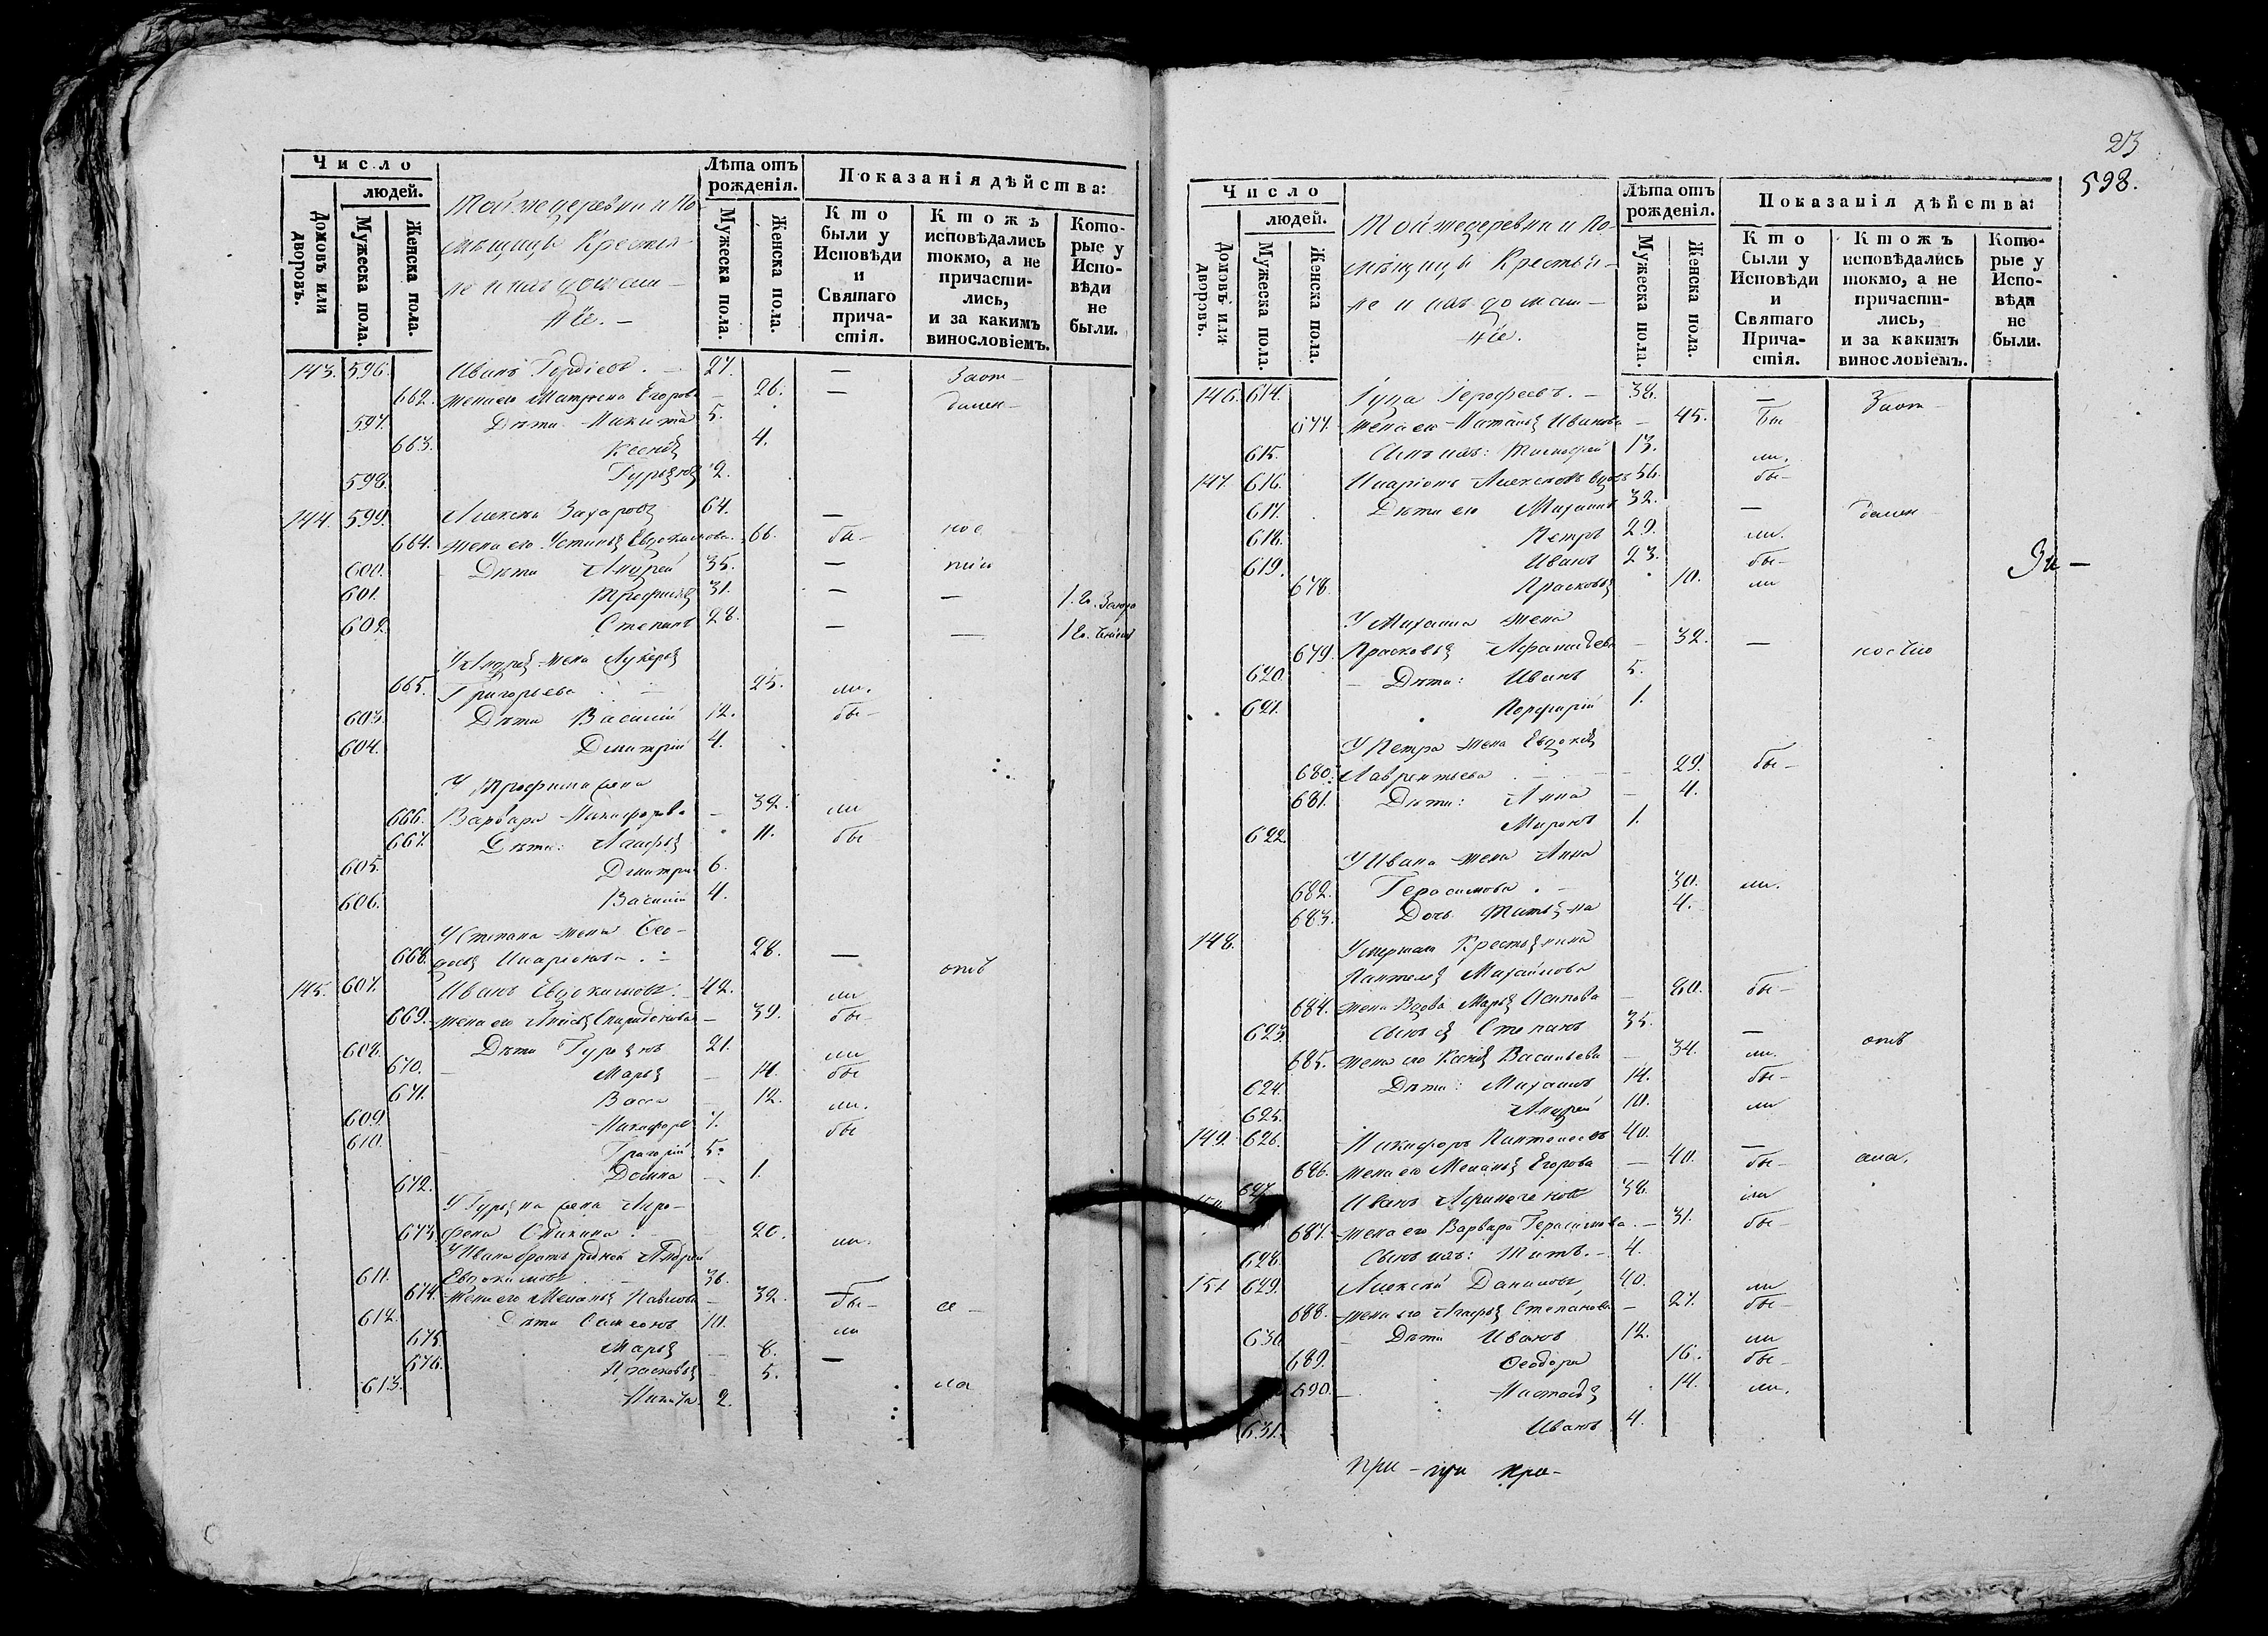 Число
людей.
Домовъ или дворовъ.
Мужеска пола.
Женска пола.
Той же деревни и По-
мѣщицы Крестья-
не и ихъ домаш-
ніе. –
Лѣта отъ рожденія.
Мужеска пола.
Женска пола.
Показанія дѣйства:
Кто были у Исповѣди и Святаго причастія.
Ктожъ исповѣдались токмо, а не причасти-лись, и за какимъ винословіемъ.
Кото-рые у Испо-вѣди не были.
143. 596. Иванъ Гордѣевъ. – 27. – Заот-
662. жена его Матрона Егорова – 26. – дален-
597. Дѣти Никита 5.
663. Ксенія 4.
598. Гурьянъ 2.
144. 599. Алексѣй Захаровъ 64. –
664. жена его Устинья Евдокимова. 66. бы- нос
600. Дѣти Андрей 35. –
601. Трофимъ 31. – – 1.
602. Степанъ 28. – – 1
У Андрея жена Лукерья
665. Григорьева 25. ли.
603. Дѣти Василій 12. бы-
604. Дмитрій 4.
У Трофима жена
666. Варвара Никифорова – 32. ли
667. Дѣти: Агафья 11. бы
605. Дмитрій 6.
606. Василій 4.
У Степана жена Ѳео-
668. досья Иларіонова. 28. –
145. 607. Иванъ Евдокимовъ. – 42. ли
669. жена его Анисья Спиридонова – 39. бы-
608. Дѣти Гурьянъ 21. ли
670. Марья – 14. бы
671. Васса – 12. ли.
609. Никифоръ 7. бы
610. Григорій 5.
672. Домна – 1.
У Гурьяна жена Агро-
673. фена Никитина. 20. ли.
У Ивана братъ родной Андрей
611. Евдокимовъ 36. –
674. жена его Меланья Павлова – 32. бы-
612. Дѣти Симеонъ 10. ли
675. Марья – 8. –
676. Прасковья – 5.
613. Никита 2. ла
23
598.
Число
людей.
Домовъ или дворовъ.
Мужеска пола.
Женска пола.
Той же деревни и По-
мѣщицы Крестья-
не и ихъ домаш-
ніе.
Лѣта отъ рожденія.
Мужеска пола.
Женска пола.
Показанія дѣйства:
Кто были у Исповѣди и Святаго Прича-стія.
Ктожъ исповѣдались токмо, а не причасти-лись, и за какимъ винословіемъ.
Кото-рые у Испо-вѣди не были.
146. 614. Ерофеевъ. – 38. – Заот-
677. жена его Наталья Иванова – 45. бы
615. Сынъ ихъ: Тимофей 13. ли.
147. 616. Иларіонъ Алексѣевъ вдовъ 56. бы-
617. Дѣти его Михаилъ 32. – дален
618. Петръ 29. ли.
619. Иванъ 23. бы-
678. Прасковья 10. ли
У Михаила жена
679. Прасковья Афанасьева – 32. – ностію
620. Дѣти: Иванъ 5.
621. Порфирій 1.
У Петра жена Евдокія
680. Лаврентьева 29. бы-
681. Дѣти: Анна – 4.
622. Миронъ 1.
У Ивана жена Анна
682. Герасимова. 30. ли.
683. Дочь Татьяна 4.
148. Умершаго Крестьянина
Пантелея Михайлова
684. жена вдова Марья Осипова – 80. бы-
623. Сынъ ея Степанъ 35. –
685. жена его Ксенія Васильева – 34. ли.
624. Дѣти: Михаилъ 14. бы-
625. Андрей 10. ли
149. 626. Никифоръ Пантелеевъ 40. –
686. жена его Меланья Егорова – 40. бы-
627. Иванъ Афиногеновъ 38. ли
687. жена его Варвара Герасимова. – 31. бы-
628. Сынъ ихъ: Титъ. – 4.
151 629. Алексѣй Даниловъ 40. ли
688. жена его Агафья Степанова – 27. бы-
630. Дѣти Иванъ 12. ли
689. Ѳеодора 16. бы-
690. Настасья 14. ли.
631. Иванъ 4.
при – при при-